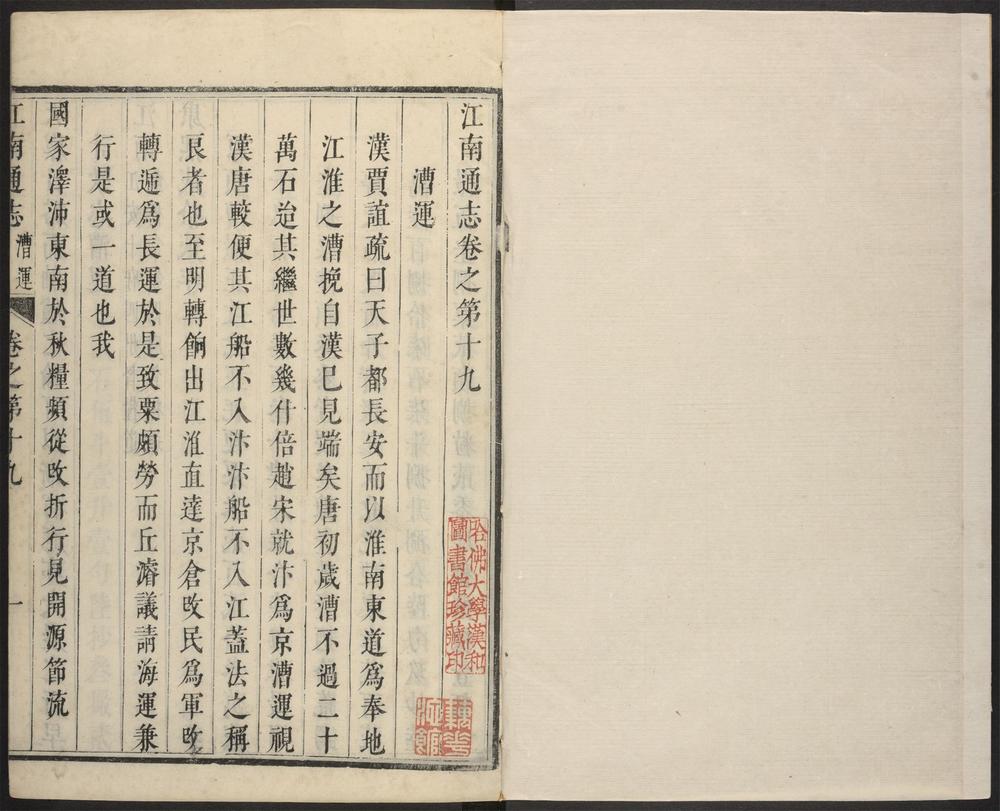 江南通志卷之第十九
漕運
漢賈誼疏曰天子都長安而以淮南東道爲奉地
江淮之漕挽自漢已見端矣唐初歲漕不過二十
萬石迨其繼世數幾什倍趙宋就汴爲京漕運視
漢唐較便其江船不入汴汴船不入江蓋法之稱
良者也至明轉餉出江淮直達京倉改民爲軍改
轉遞爲長運於是致粟頗勞而丘濬議請海運兼
行是或一道也我
國家澤沛東南於秋糧頻從改折行見開源節流
江南通志 漕運 卷之第十九 一
哈佛大學漢和
圖書館珍藏印